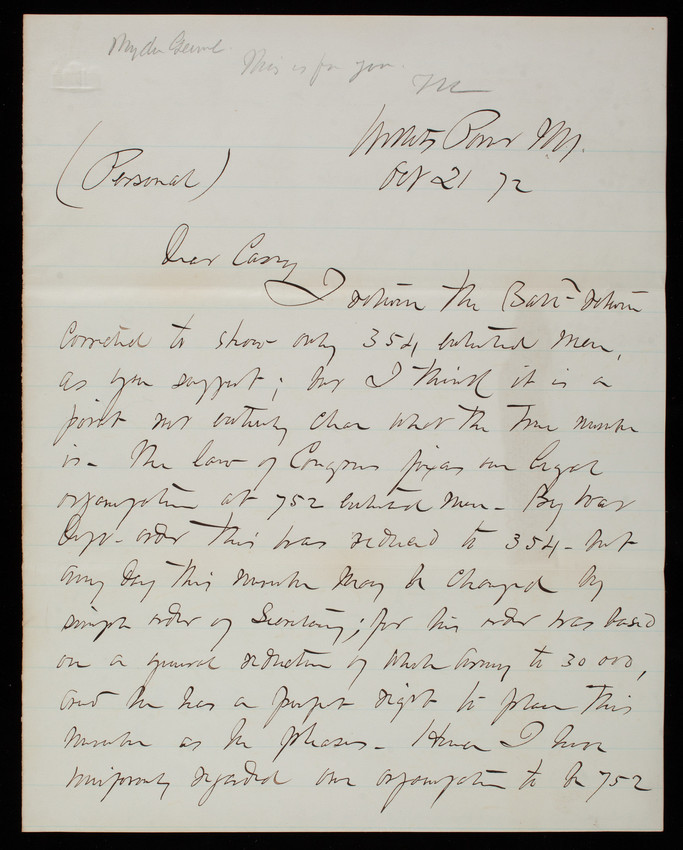 My dear General.
This is for you.
(Personal)
Willets Point N.Y.
Oct 21 72
Dear Casey
I return the Batt- return
corrected to show only 354 enlisted men,
as you suggest; but I think it is a
point not entirely clear what the true number
is- The law of Congress fixes our legal
organization at 752 enlisted men- By War
Dept- order this was reduced to 354- but
any day this number may be changed by
simple order of Secretary; for his order was based
on a general reduction of whole Army to 30 000,
and he has a perfect right to place this
number as he pleases- Hence I have
uniformly regarded our organization to be 752